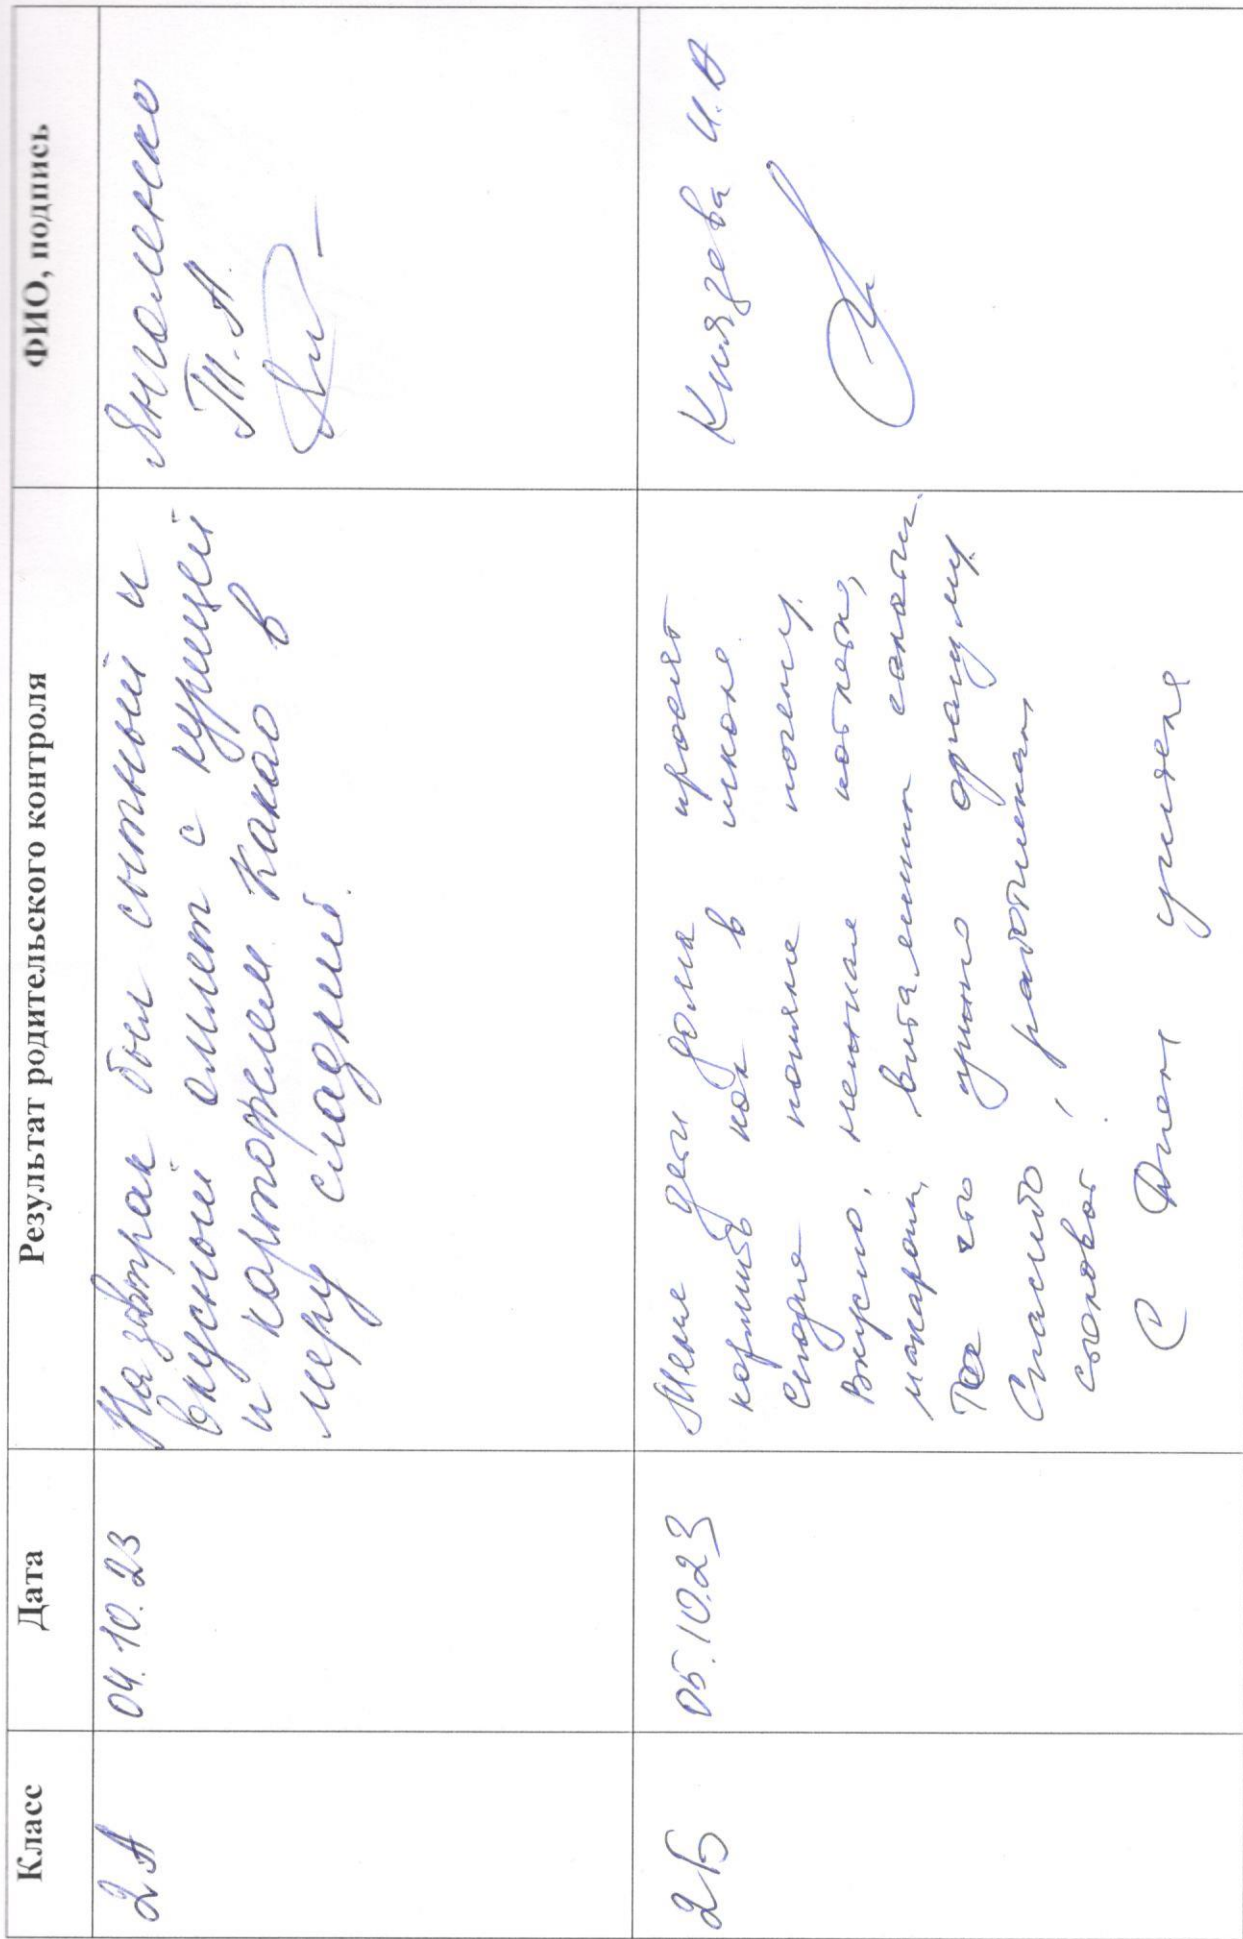 Класс Дата Результат родительского контроля ФИО, подпись
2А 04.10.23
На завтрак был сытный и
вкусный омлет с курицей
и картофелем какао в
меру сладкий.
Янголенко
Т.А.
2Б 05.10.23
Меня дети дома просят
кормить как в школе.
Сегодня поняла почему.
Вкусно, нежная котлета,
макароны, витаминн
Так что
Спасибо, работникам
столовой!
С Днем учителя
Князева И.А